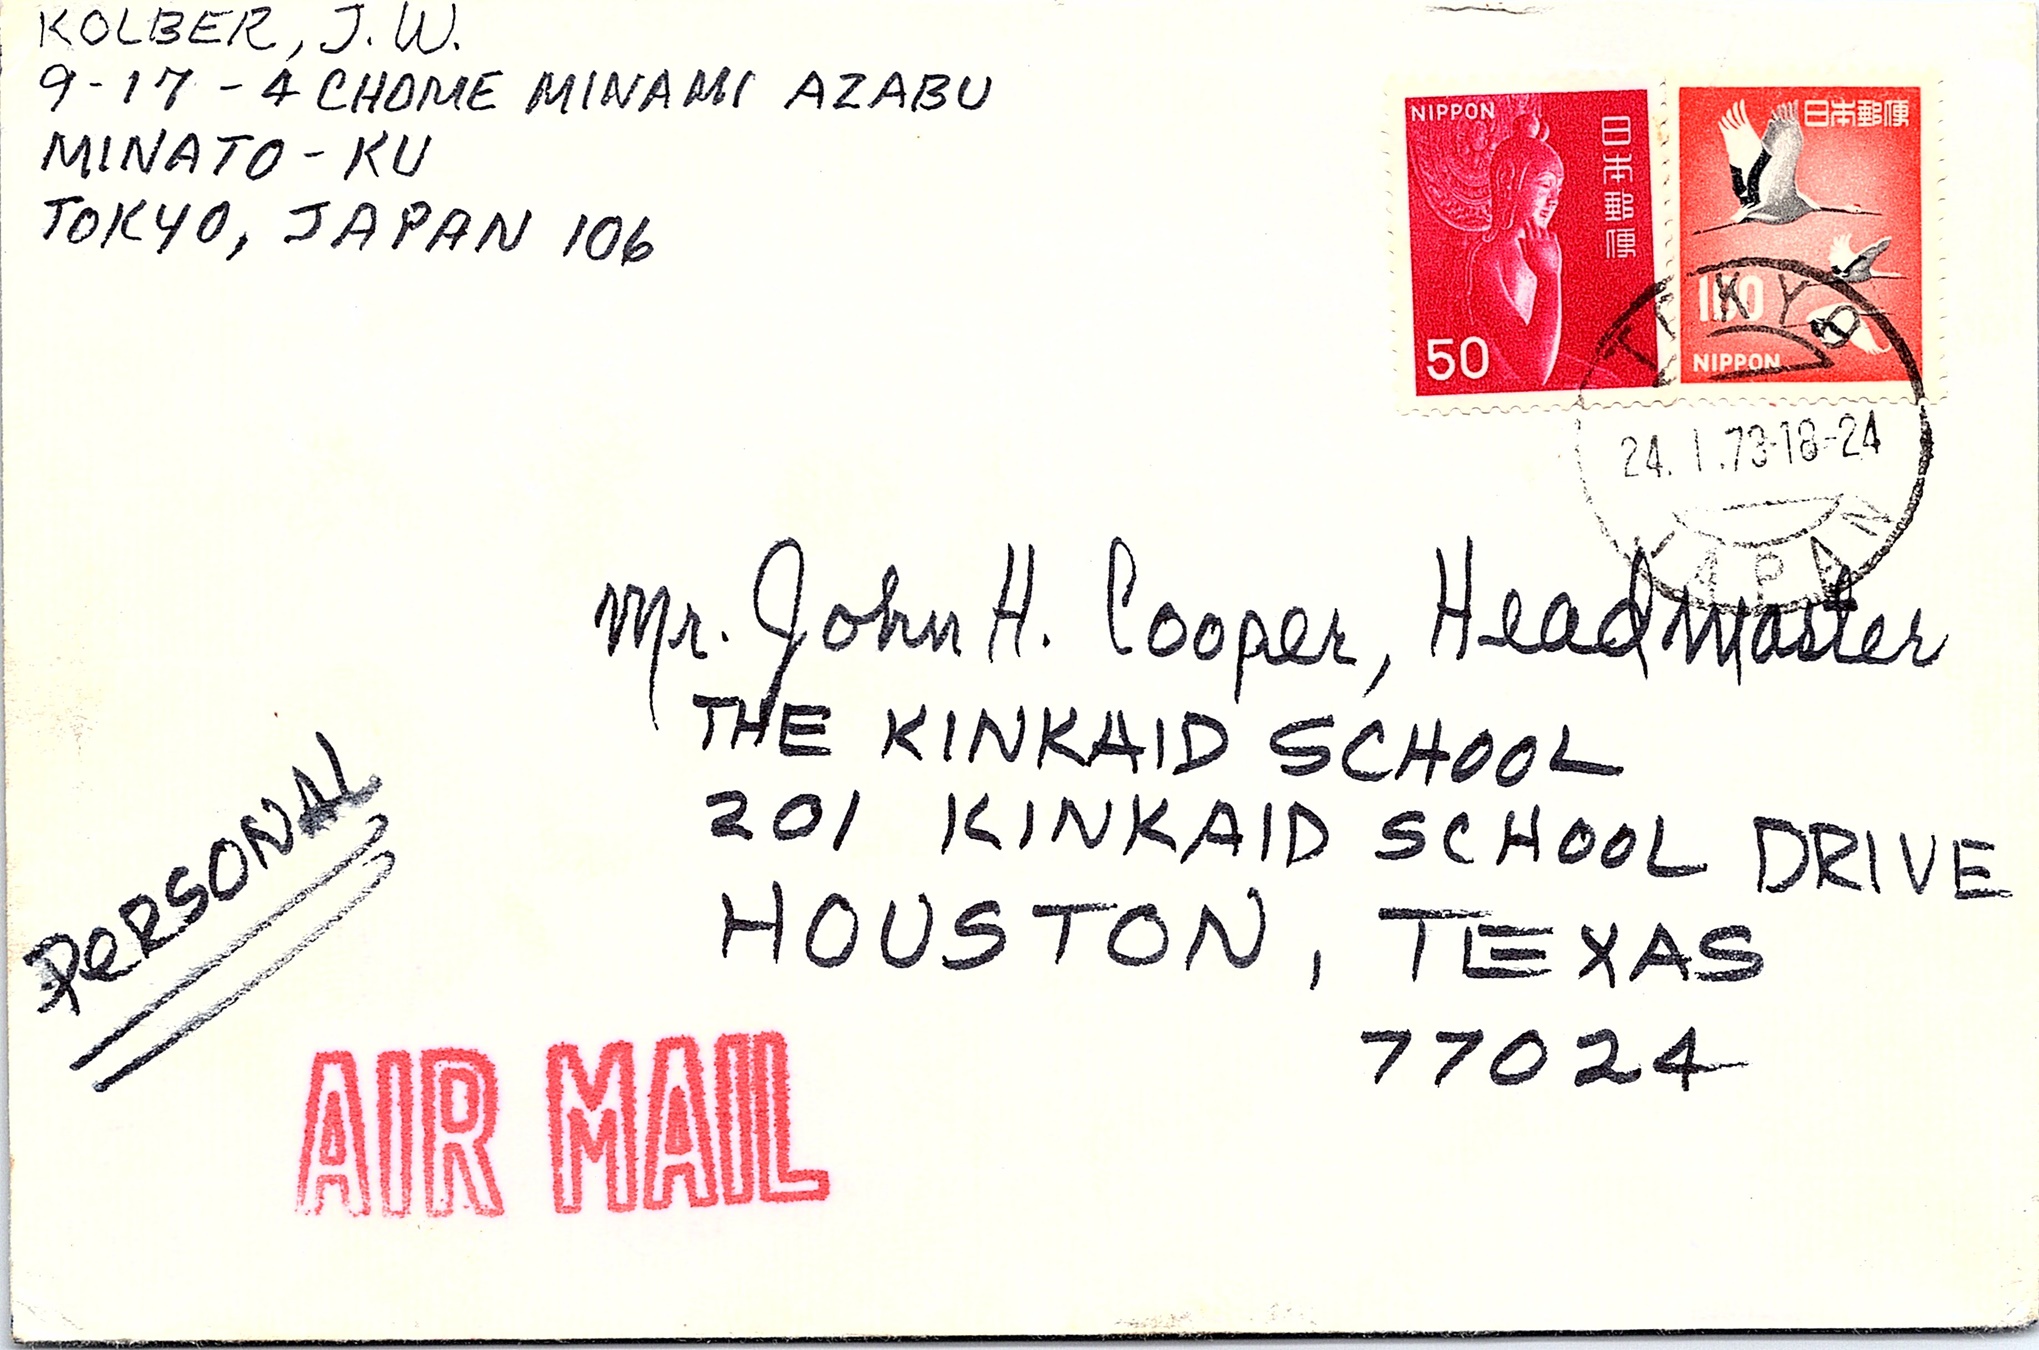 KOLBER, J. W.
9-17-4 CHOME MINAMI AZABU
MINATO-KU
TOKYO, JAPAN 106
NIPPON
日本郵便
50
日本郵便
100
NIPPON
TOKYO
24. I .73-18-24
JAPAN
Mr. John H. Cooper, Headmaster
THE KINKAID SCHOOL
201 KINKAID SCHOOL DRIVE
HOUSTON, TEXAS
77024
PERSONAL
AIR MAIL